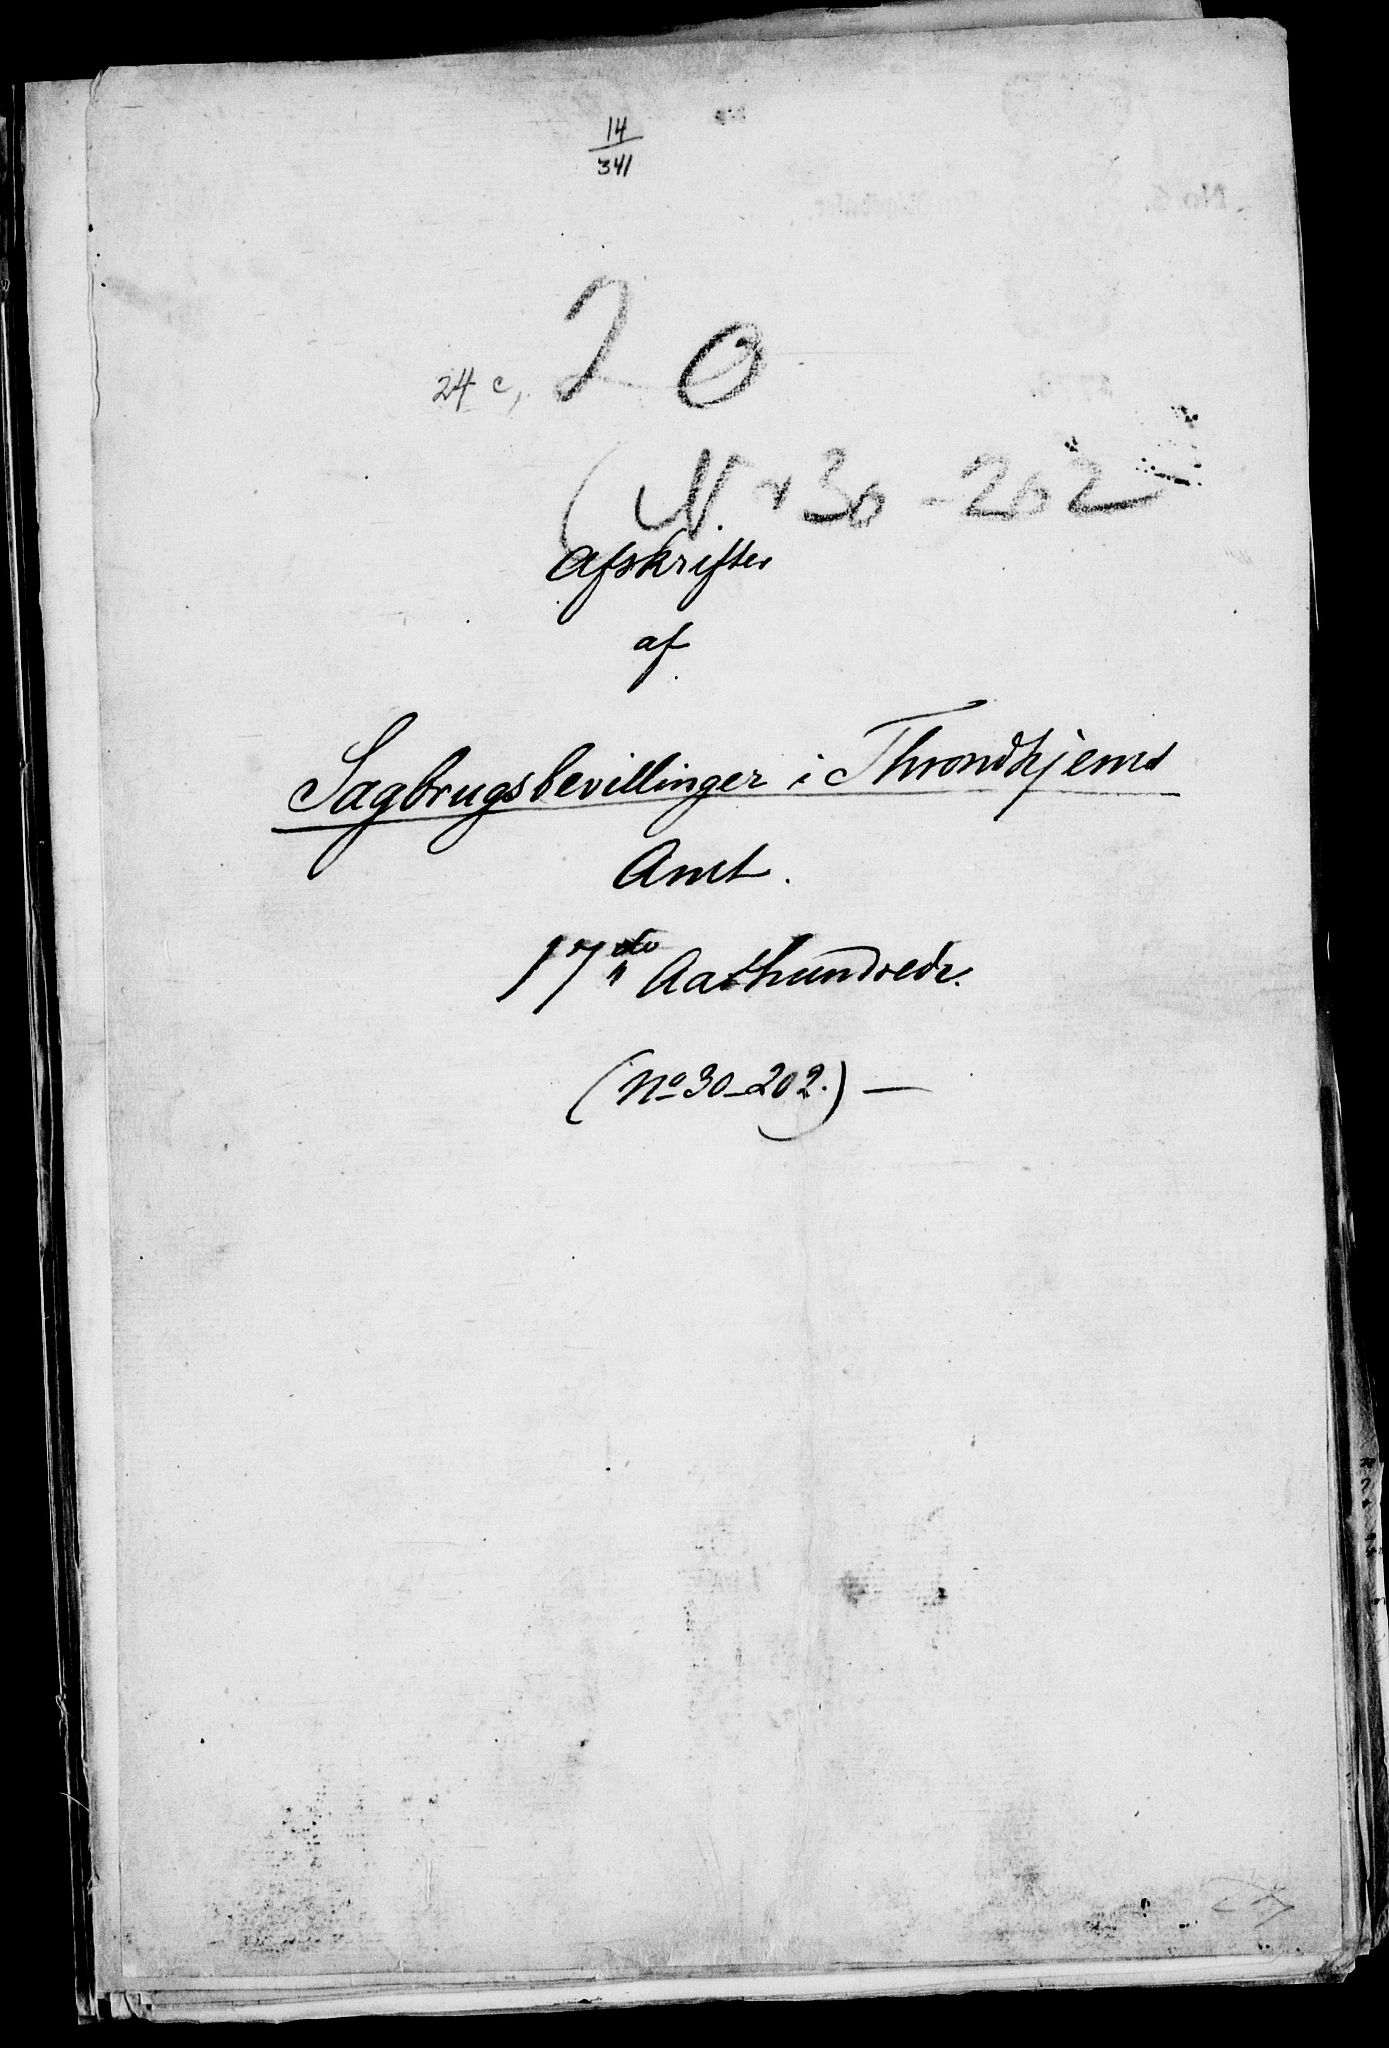 14
341
24 c, 20
(Nr 30-202
Afskrifter
af
Sagbrugsbevillinger i Throndhjems
Amt.
17de Aarhundrede.
(No 30-202.) —